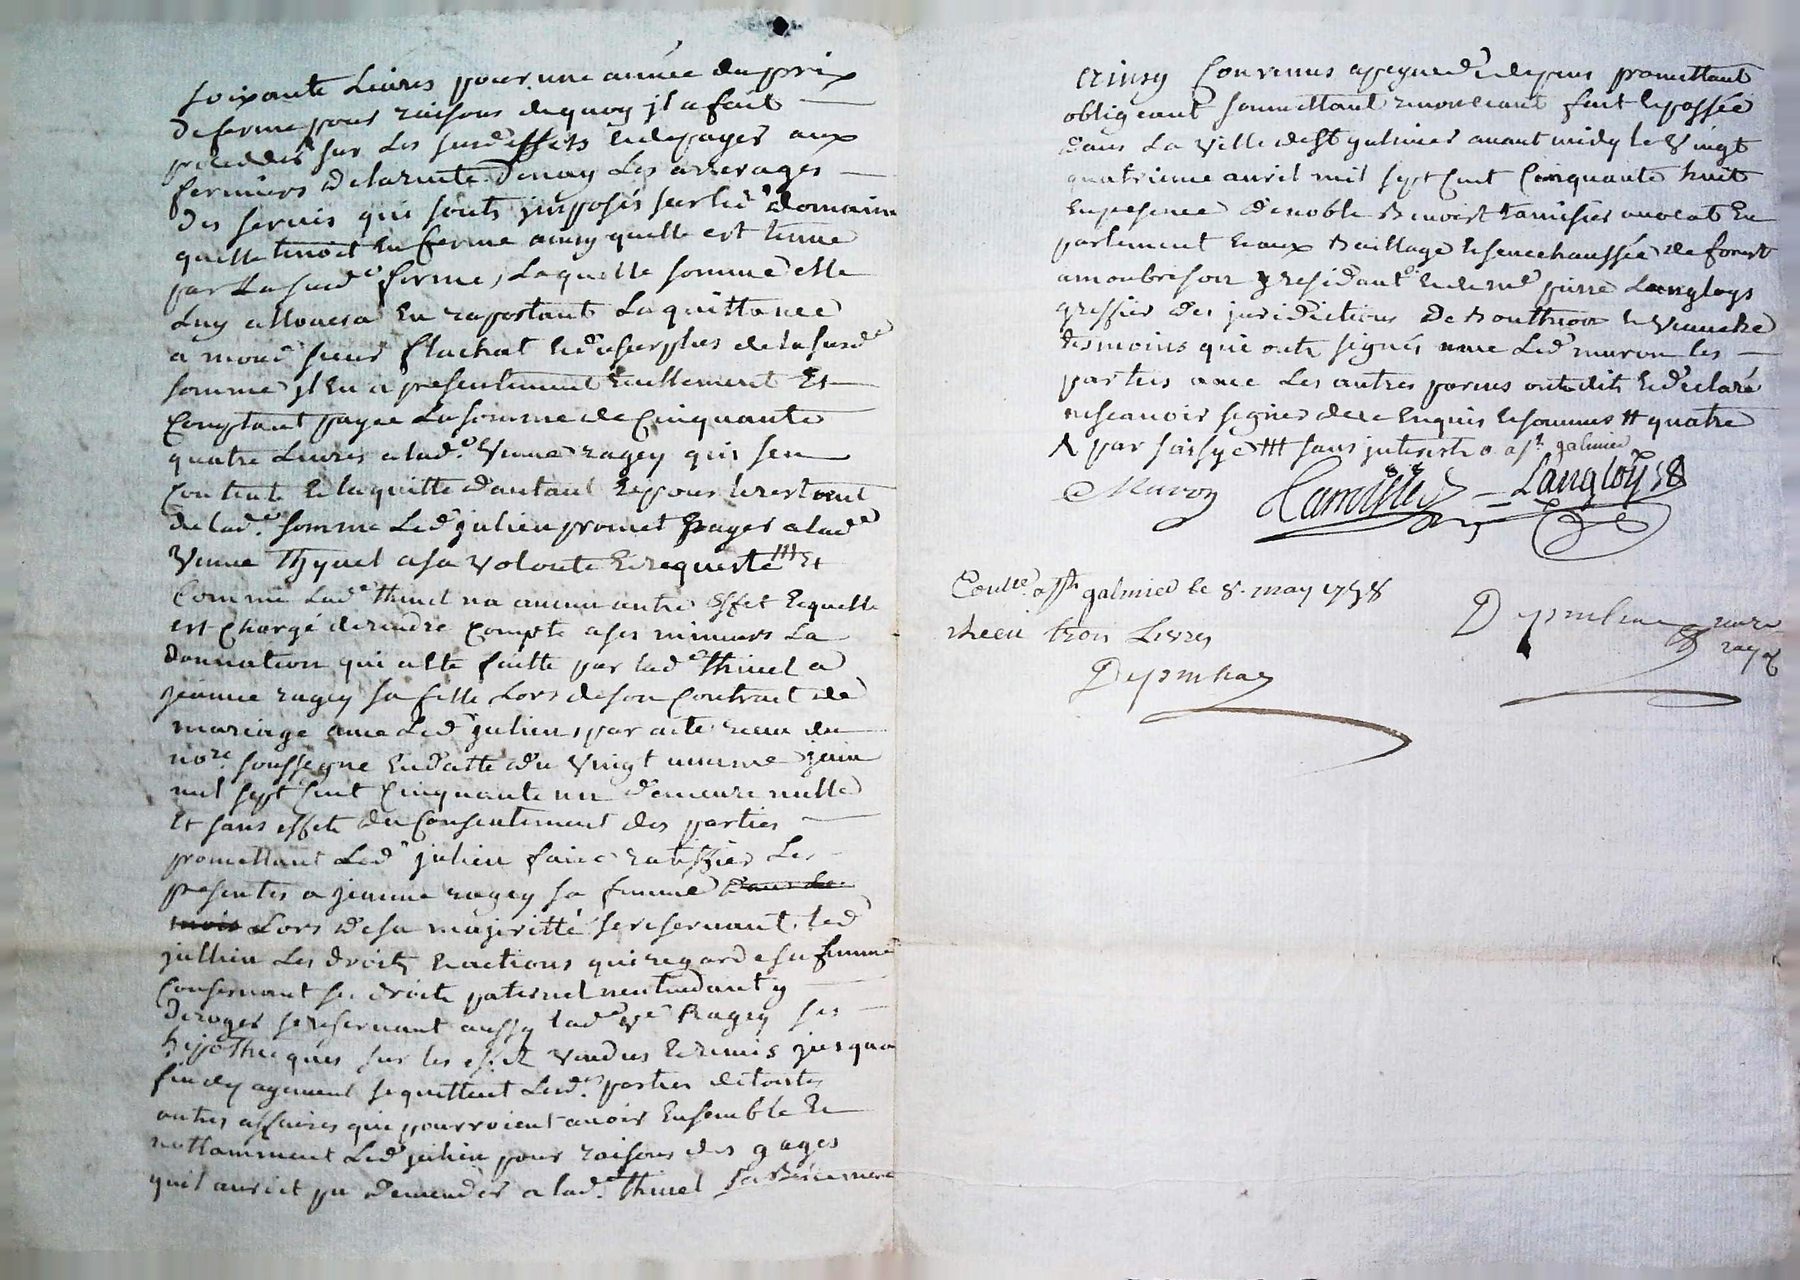 soixante Livres pour une année du prix
de ferme pour raisons de quoy il a fait
proceddés sur les susd effets et de payer aux
fermiers de la rente Donay Les arrerages
des servis qui sont jmposés sur led domaine
quelle tenoit En ferme ainsy quelle est tenue
par La susd.e ferme, Laquelle somme elle
Luy allouera En raportant La quittance
a mond sieur flachat et de surplus de la susd.e
somme jl En a presentement reellement Et
Comptant payée La somme de Cinquante
quatre Livres a lad.e Veuve ragey qui sen
Contente et la quitte d'autant et pour le restant
de lad.e somme Led julien promet payer a lad.e
Veuve Thynel a sa volonté et requeste ttt Et
Comme Lad.e thinel na aucun autre Effet et quelle
est Chargé de rendre Compte a ses mineurs La
donnation qui a été faitte par lad.e thinel a
jeanne ragey sa fille Lors de son Contrait de
mariage avec Led julien, par acte receu du
no.re soussigne En datte du vingt unieme juin
mil sept cent Cinquante un demeure nulle
Et sans effet du Consentement des parties
promettant Led julien faire ratiffier Les
presentes a jeanne ragey sa femme dans le
mois Lors de sa majoritté se reservant led
jullien Les droits et actions qui regarde sa femme
Conservant ses droits paternel nentendant y
deroger se reservant aussy lad.e v.e Ragey ses
hippothecques sur les effet vendus et remis jusqua
fin de payement se quittent Led. parties de toutes
autres affaires qui pourroient avoir Ensemble Et
nottamment Led julien pour raisons des gages
quil auroit pu demender a lad.e thinel sa Bellemere
Ainsy Convenus a peyne de depens promettant
obligeant soumettant renonceant fait et passée
dans La ville de St galmier avant midy le vingt
quatrieme avril mil sept Cent Cinquante huit
En presence de noble Benoist tamisier avocat En
parlement et aux Baillage et senechaussée de forest
a monbrison y residant et de m.e pierre Langloys
greffier des juridictions de Boutheon et veauche
tesmoins qui onts signés avec Led muron les
parties avec Les autres parties ont dit et declaré
ne scavoir signer de ce Enquis et sommes # quatre
par ttt sans jnterest a St galmier
Muron Tamisier Langloys
Con.lé a St galmier le 8. may 1758
Receu trois Livres